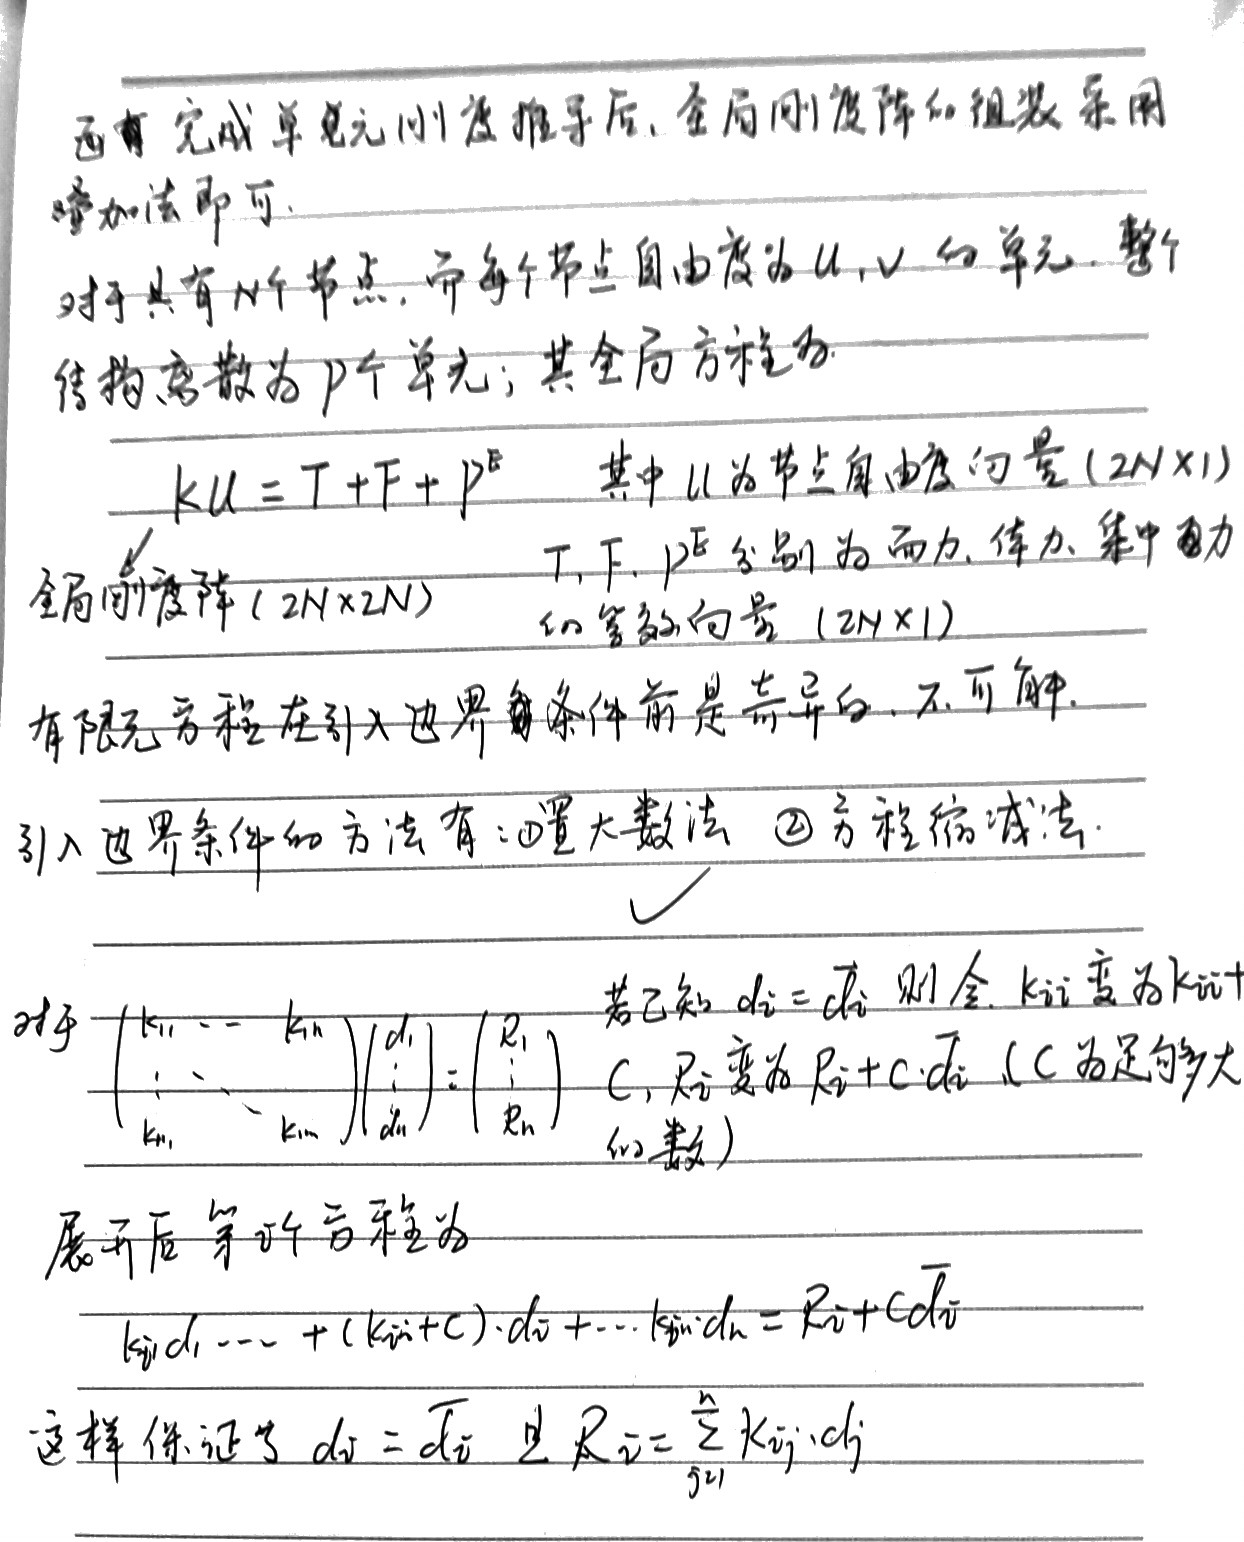 在完成单元刚度推导后、全局刚度阵的组装采用
叠加法即可.
对于具有N个节点,而每个节点自由度为u,v的单元.整个
结构离散为P个单元;其全局方程为
KU=T+F+P^E 其中U为节点自由度向量(2N×1)
全局刚度阵(2N×2N) T、F、P^E分别为面力、体力、集中力
的等效向量(2N×1)
有限元方程在引入边界条件前是奇异的.不可解.
引入边界条件的方法有:①置大数法 ②方程缩减法.
✓
对于 (k11 ·· k1n ⋮ ⋱ kn1 knn)(d1 ⋮ dn)=(R1 ⋮ Rn) 若已知di=d̄i则令.kii变为kii+
C,Ri变为Ri+C·d̄i(C为足够大
的数)
展开后第i个方程为
ki1d1····+(kii+C)·di+···kin·dn=Ri+Cd̄i
这样保证了di=d̄i且Ri=∑_{j=1}^{n}Kij·dj